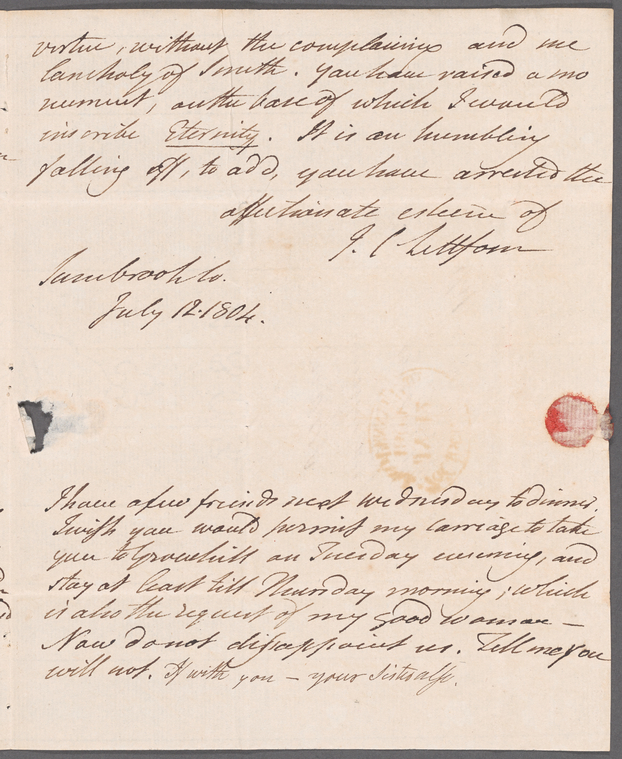 virtue, without the complaining and me
lancholy of Smith. You have raised a mo
nument, on the base of which I would
inscribe Eternity. It is an humbling
falling off, to add, you have arrested the
affectionate esteem of
J. C Lettsom
Sambrook Co.
July 12. 1804.
I have a few friends next Wednesday to dinner.
I wish you would permit my carriage to take
you to Grovehill on Tuesday evening, and
stay at least till Thursday morning; which
is also the request of my good woman —
Now do not disappoint us. Tell me you
will not. & with you — your Sister also.